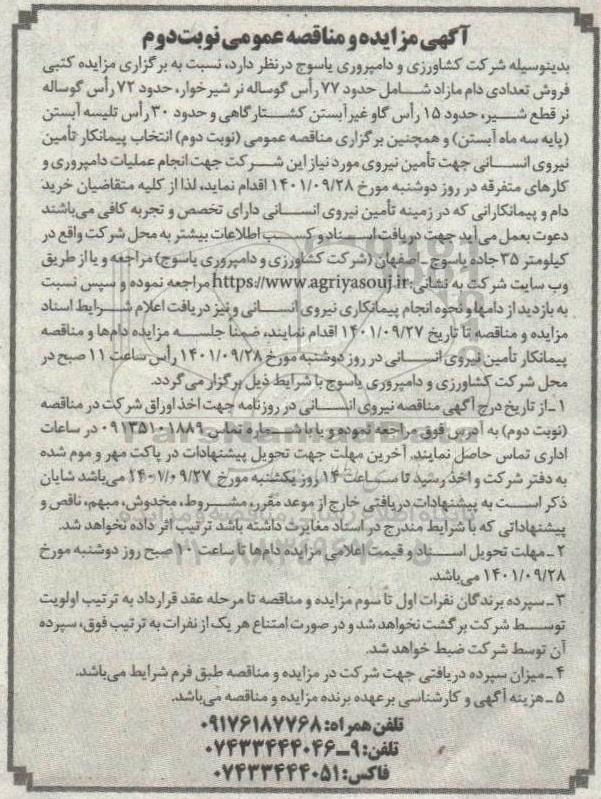 آگهی مزایده و مناقصه عمومی نوبت دوم
بدینوسیله شرکت کشاورزی و دامپروری یاسوج در نظر دارد، نسبت به برگزاری مزایده کتبی
فروش تعدادی دام مازاد شامل حدود ۷۷ رأس گوساله نر شیرخوار، حدود ۷۲ رأس گوساله
نر قطع شیر، حدود ۱۵ رأس گاو غیرآبستن کشتارگاهی و حدود ۳۰ رأس تلیسه آبستن
(پایه سه ماه آبستن) و همچنین برگزاری مناقصه عمومی (نوبت دوم) انتخاب پیمانکار تأمین
نیروی انسانی جهت تأمین نیروی مورد نیاز این شرکت جهت انجام عملیات دامپروری و
کارهای متفرقه در روز دوشنبه مورخ ۱۴۰۱/۰۹/۲۸ اقدام نماید، لذا از کلیه متقاضیان خرید
دام و پیمانکارانی که در زمینه تأمین نیروی انسانی دارای تخصص و تجربه کافی می‌باشند
دعوت بعمل می‌آید جهت دریافت اسناد و کسب اطلاعات بیشتر به محل شرکت واقع در
کیلومتر ۳۵ جاده یاسوج ـ اصفهان (شرکت کشاورزی و دامپروری یاسوج) مراجعه و یا از طریق
وب سایت شرکت به نشانی: https://www.agriyasouj.ir مراجعه نموده و سپس نسبت
به بازدید از دامها و نحوه انجام پیمانکاری نیروی انسانی و نیز دریافت اعلام شرایط اسناد
مزایده و مناقصه تا تاریخ ۱۴۰۱/۰۹/۲۷ اقدام نمایند، ضمناً جلسه مزایده دام‌ها و مناقصه
پیمانکار تأمین نیروی انسانی در روز دوشنبه مورخ ۱۴۰۱/۰۹/۲۸ رأس ساعت ۱۱ صبح در
محل شرکت کشاورزی و دامپروری یاسوج با شرایط ذیل برگزار می‌گردد.
۱ـ از تاریخ درج آگهی مناقصه نیروی انسانی در روزنامه جهت اخذ اوراق شرکت در مناقصه
(نوبت دوم) به آدرس فوق مراجعه نموده و یا با شماره تماس ۰۹۱۳۵۱۰۱۸۸۹ در ساعات
اداری تماس حاصل نمایند. آخرین مهلت جهت تحویل پیشنهادات در پاکت مهر و موم شده
به دفتر شرکت و اخذ رسید تا ساعت ۱۴ روز یکشنبه مورخ ۱۴۰۱/۰۹/۲۷ می‌باشد شایان
ذکر است به پیشنهادات دریافتی خارج از موعد مقرر، مشروط، مخدوش، مبهم، ناقص و
پیشنهاداتی که با شرایط مندرج در اسناد مغایرت داشته باشد ترتیب اثر داده نخواهد شد.
۲ـ مهلت تحویل اسناد و قیمت اعلامی مزایده دام‌ها تا ساعت ۱۰ صبح روز دوشنبه مورخ
۱۴۰۱/۰۹/۲۸ می‌باشد.
۳ـ سپرده برندگان نفرات اول تا سوم مزایده و مناقصه تا مرحله عقد قرارداد به ترتیب اولویت
توسط شرکت برگشت نخواهد شد و در صورت امتناع هر یک از نفرات به ترتیب فوق، سپرده
آن توسط شرکت ضبط خواهد شد.
۴ـ میزان سپرده دریافتی جهت شرکت در مزایده و مناقصه طبق فرم شرایط می‌باشد.
۵ـ هزینه آگهی و کارشناسی برعهده برنده مزایده و مناقصه می‌باشد.
تلفن همراه: ۰۹۱۷۶۱۸۷۷۶۸
تلفن: ۹ـ۰۷۴۳۳۴۴۴۰۴۶
فاکس: ۰۷۴۳۳۴۴۴۰۵۱